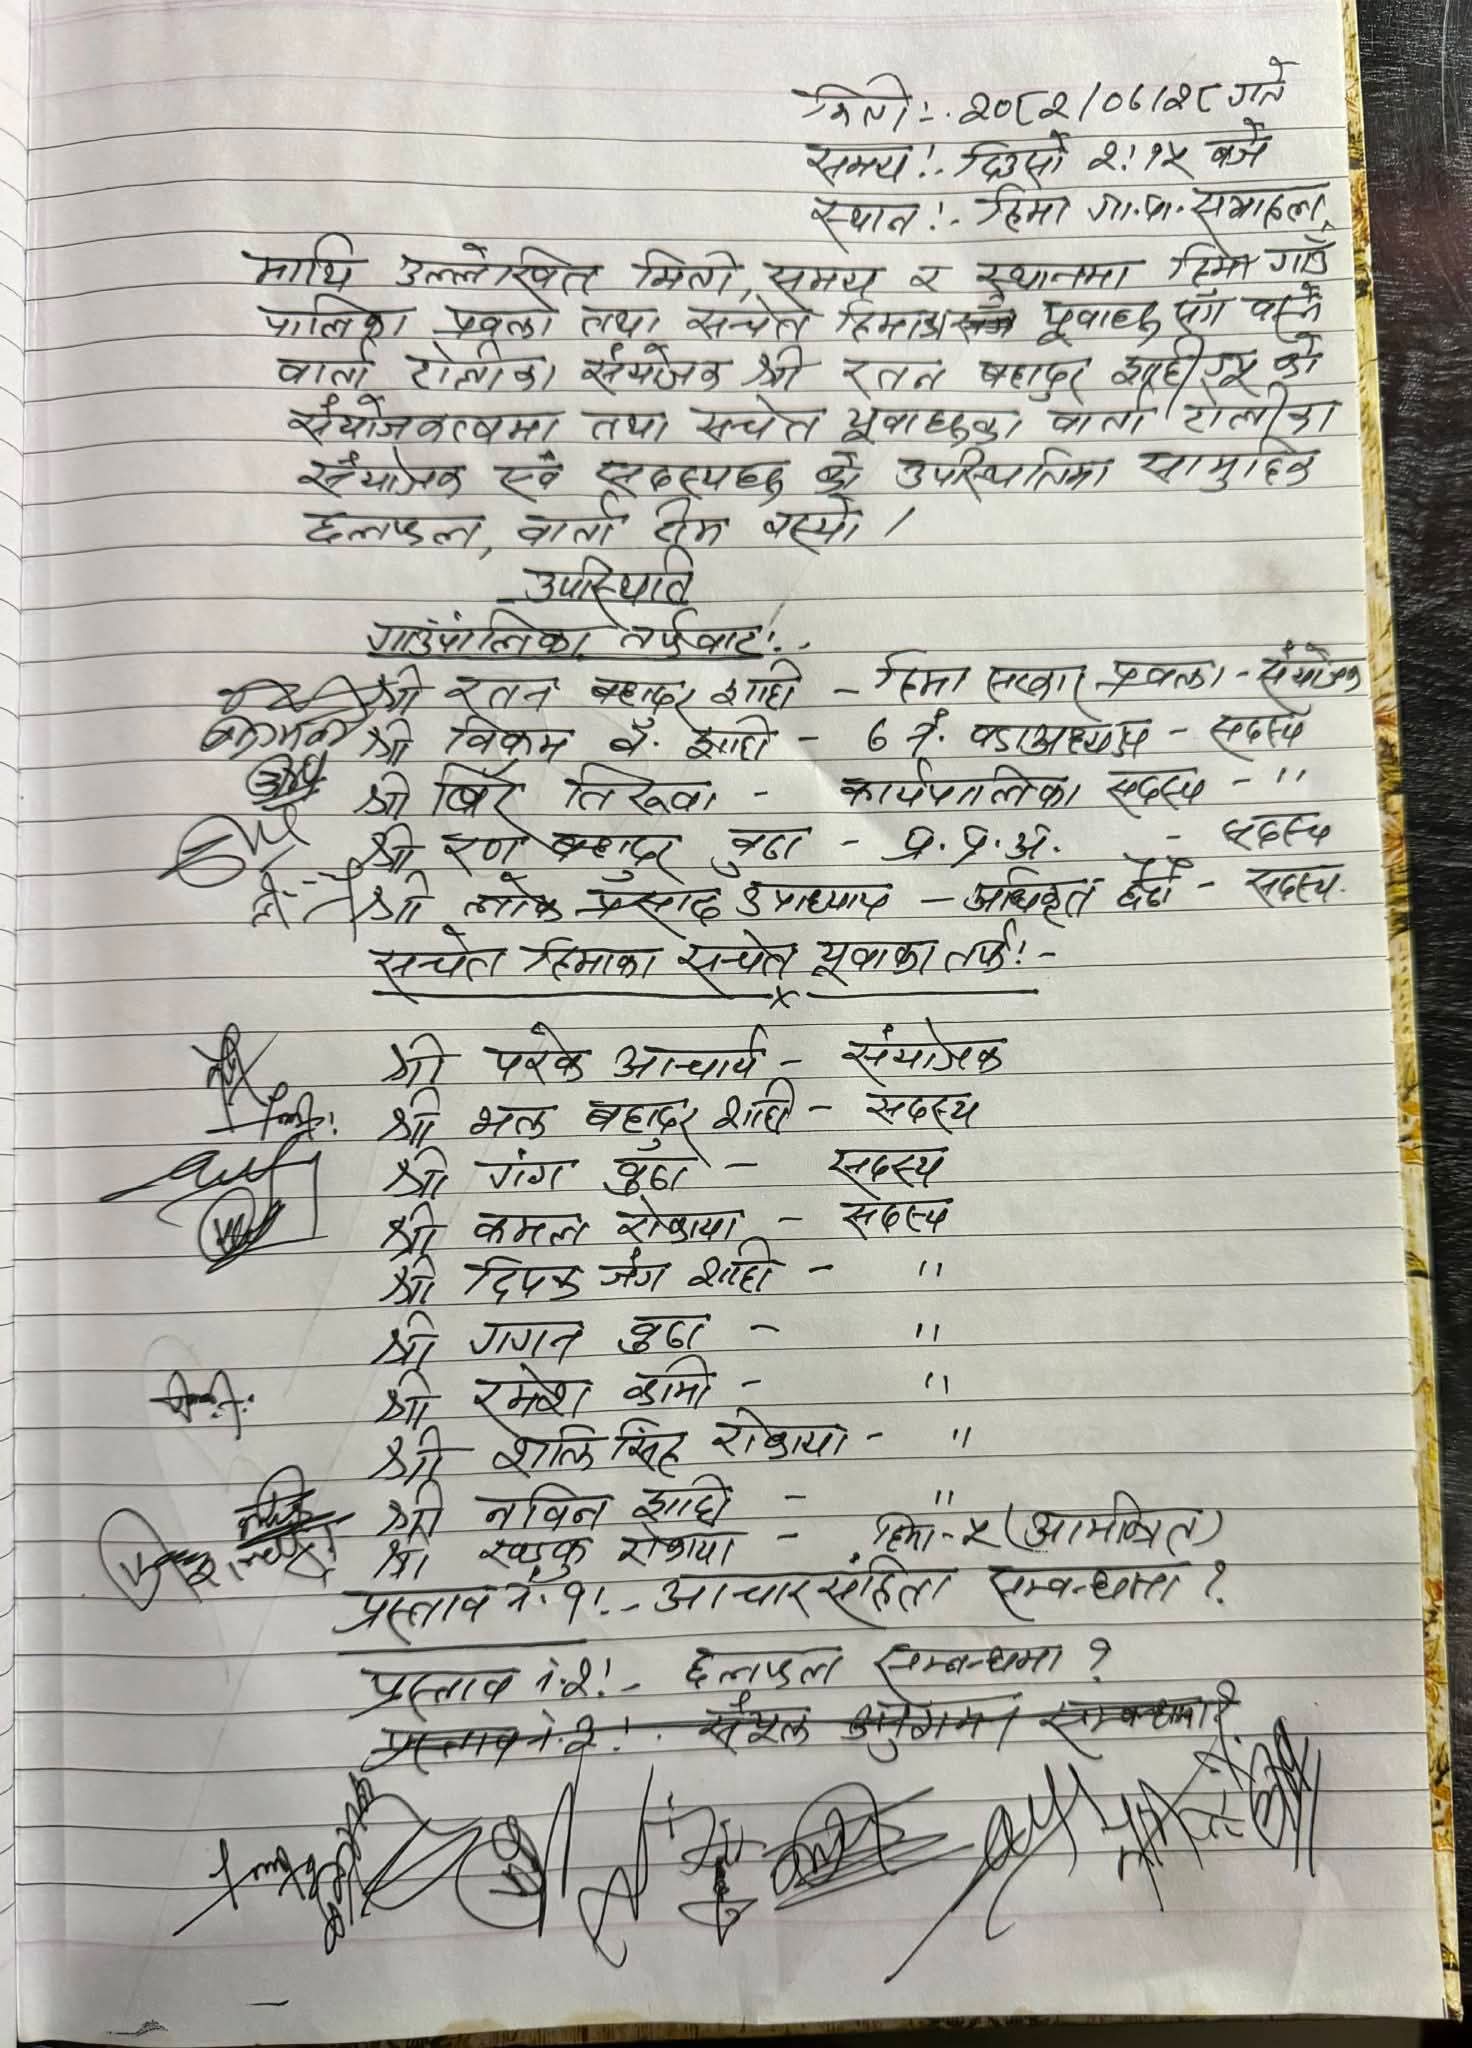 मिती:- २०८२/०६/२८ गते
समय:- दिउसो २:१५ बजे
स्थान:- हिमा गा.पा. सभाहल,
माथि उल्लेखित मिती, समय र स्थानमा हिमा गाउँ
पालिका प्रवक्ता तथा सचेत हिमाका यूवाहरु सँग बस्ने
वार्ता टोलीका संयोजक श्री रतन बहादुर शाही ज्यू को
संयोजकत्वमा तथा सचेत यूवाहरुका वार्ता टोलीका
संयोजक एवं सदस्यहरु को उपस्थितिमा सामुहिक
छलफल, वार्ता टीम बस्यो।
उपस्थिति
गाउँपालिका तर्फबाट:-
श्री रतन बहादुर शाही - हिमा सरकार प्रवक्ता - संयोजक
श्री विक्रम ब. शाही - ७ नं. वडाअध्यक्ष - सदस्य
श्री बिरे तिरुवा - कार्यपालिका सदस्य - "
श्री रण बहादुर बुढा - प्र.प्र.अ. - सदस्य
श्री लोक प्रसाद उपाध्याय - अधिकृत छैठौँ - सदस्य
सचेत हिमाका सचेत यूवाका तर्फ:-
श्री परके आचार्य - संयोजक
श्री भक्त बहादुर शाही - सदस्य
श्री गंग बुढा - सदस्य
श्री कमल रोकाया - सदस्य
श्री दिपक जंग शाही - "
श्री गगन बुढा - "
श्री रमेश कामी - "
श्री शक्ति सिंह रोकाया - "
श्री नविन शाही - "
श्री खड्कु रोकाया - हिमा-५ (आमन्त्रित)
प्रस्ताव नं. १:- आचारसंहिता सम्बन्धमा?
प्रस्ताव नं. २:- छलफल सम्बन्धमा?